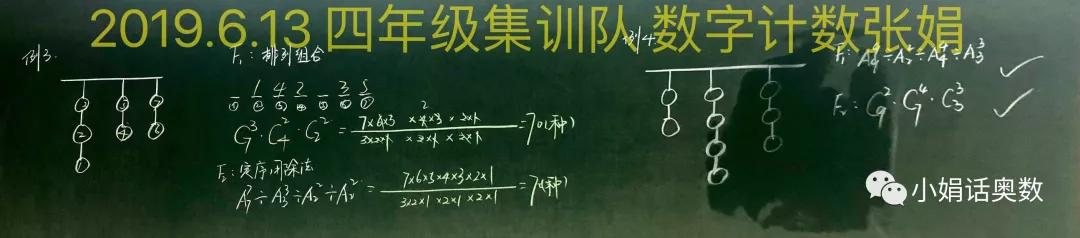 2019.6.13 四年级集训队 数字计数张娟
例3.
F₁：排列组合
1 4 2 3 5
C₇³·C₄²·C₂² = (7×6×5 × 4×3 × 2×1)/(3×2×1 × 2×1 × 2×1) = 70(种)
F₂：定序用除法
A₇⁷÷A₃³÷A₂²÷A₂² = (7×6×5×4×3×2×1)/(3×2×1 ×2×1 ×2×1) = 70(种)
例4.
F₁：A₉⁹÷A₂²÷A₄⁴÷A₃³ ✓
F₂：C₉²·C₇⁴·C₃³ ✓
小娟话奥数